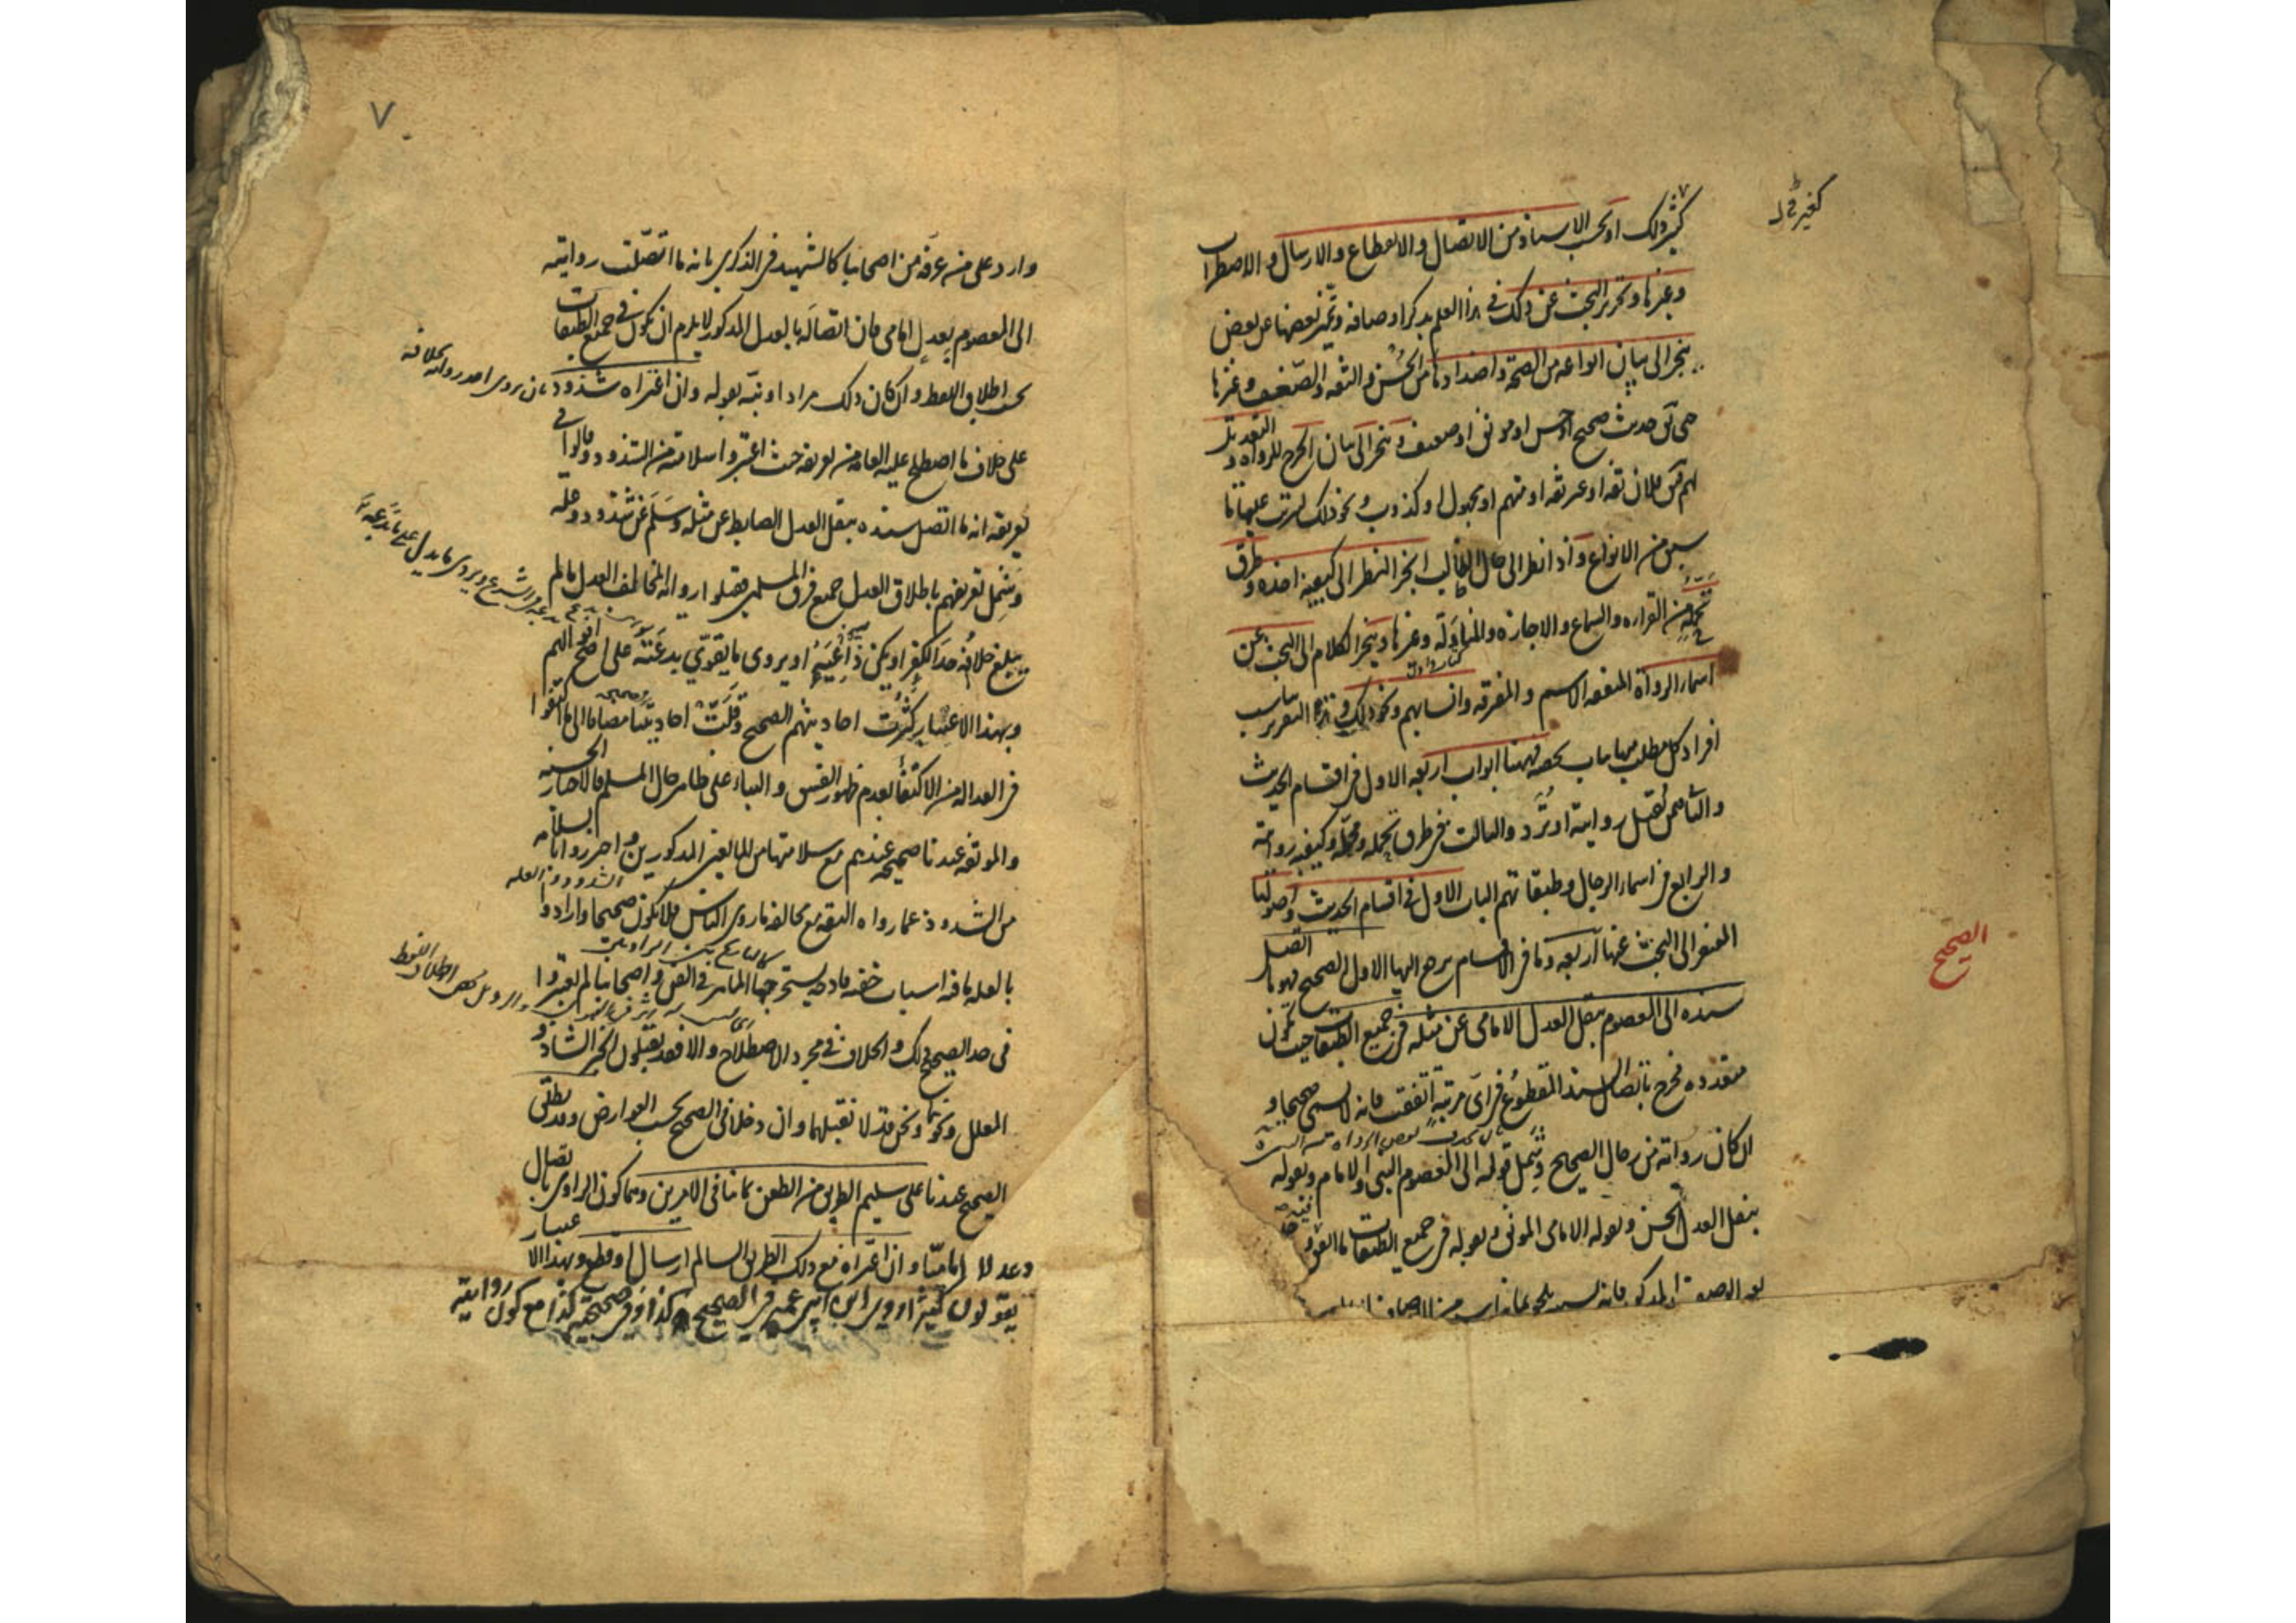 كغير ذلك
كثير ذلك او بحسب الاسناد من الاتصال والانقطاع والارسال والاضطراب
وغيرها وتحرير البحث عن ذلك في هذا العلم بذكر اوصافه وتميز بعضها عن بعض
ينجر الى بيان انواعه من الصحة واضدادها من الحسن والثقة والضعف وغيرها
حتى يق حديث صحيح او حسن او موثق او ضعيف وينجر الى بيان الجرح للرواة والتعديل
لهم يق فلان ثقة او غير ثقة او متهم او مجهول او كذوب ونحو ذلك ليترتب عليها ما
سبق من الانواع واذا نظر الى حال الطالب انجر النظر الى كيفية اخذه وطرق
تحمله من القراءه والسماع والاجازه والمناولة وغيرها وينجر الكلام الى البحث عن
اسماء الرواة المتفقه الاسم والمفترقه وانسابهم ونحو ذلك وهذا التقرير يناسب
افراد كل مطلب منها بباب يخصه فهنا ابواب اربعه الاول في اقسام الحديث
والثاني من تقبل روايته او ترد والثالث في طرق تحمله ومحله وكيفية روايته
والرابع في اسماء الرجال وطبقاتهم الباب الاول في اقسام الحديث واصولها
المفتقر الى البحث عنها اربعه وباقي الاقسام يرجع اليها الاول الصحيح فهو ما اتصل
الصحيح
سنده الى المعصوم بنقل العدل الامامي عن مثله في جميع الطبقات حيث تكون
متعدده فخرج باتصال السند المقطوع في اي مرتبة اتفقت فانه لا يسمى صحيحا و
ان كان رواته من رجال الصحيح وشمل قوله الى المعصوم النبي والامام وبقوله
بنقل العدل الحسن وبقوله الامامي الموثق وبقوله في جميع الطبقات ما اتفق فيه
٧
وارد على من عرفه من اصحابنا كالشهيد في الذكرى بانه ما اتصلت روايته
الى المعصوم بعدل امامي فان اتصاله بالعدل المذكور لا يلزم ان يكون في جميع الطبقات
بحسب اطلاق اللفظ وان كان ذلك مرادا ونبه بقوله وان اعتراه شذوذ
بان يروى احد روايه بخلافه
على خلاف ما اصطلح عليه العامه من تعريفه حيث اعتبروا سلامته من الشذوذ وقالوا في
تعريفه انه ما اتصل سنده بنقل العدل الضابط عن مثله وسلم عن شذوذ وعلة
وشمل تعريفهم باطلاق العدل جميع فرق المسلمين فقبلوا رواية المخالف العدل ما لم
يبلغ خلافه حد الكفر او يكن ذا بدعة او يروى ما يقوي بدعته على اصح اقوالهم
وبهذا الاعتبار كثرت احاديثهم الصحيح وقلت احاديثنا مضافا الى ما اكتفوا
في العداله من الاكتفا بعدم ظهور الفسق والبناء على ظاهر حال المسلم فالاخبار الحسنه
والموثقه عندنا صحيحه عندهم مع سلامتها من المانعين المذكورين واحترزوا بالسلامه
من الشذوذ عما رواه الثقه مع مخالفه ما روى الناس فلا يكون صحيحا وارادوا
بالعله ما فيه اسباب خفيه قادحه يستخرجها الماهر في الفن واصحابنا لم يعتبروا
في حد الصحيح ذلك والخلاف في مجرد الاصطلاح والا فقد يقبلون الخبر الشاذ و
المعلل ونحن قد لا نقبلهما وان دخلا في الصحيح بحسب العوارض وقد يطلق
الصحيح عندنا على سليم الطريق من الطعن بما ينافى الامرين وهما كون الراوى باتصال
وعدلا اماميا وان اعتراه مع ذلك الطريق السالم ارسال او قطع وبهذا الاعتبار
يقولون كثيرا روى ابن ابي عمير في الصحيح كذا وفي صحيحته كذا مع كون روايته